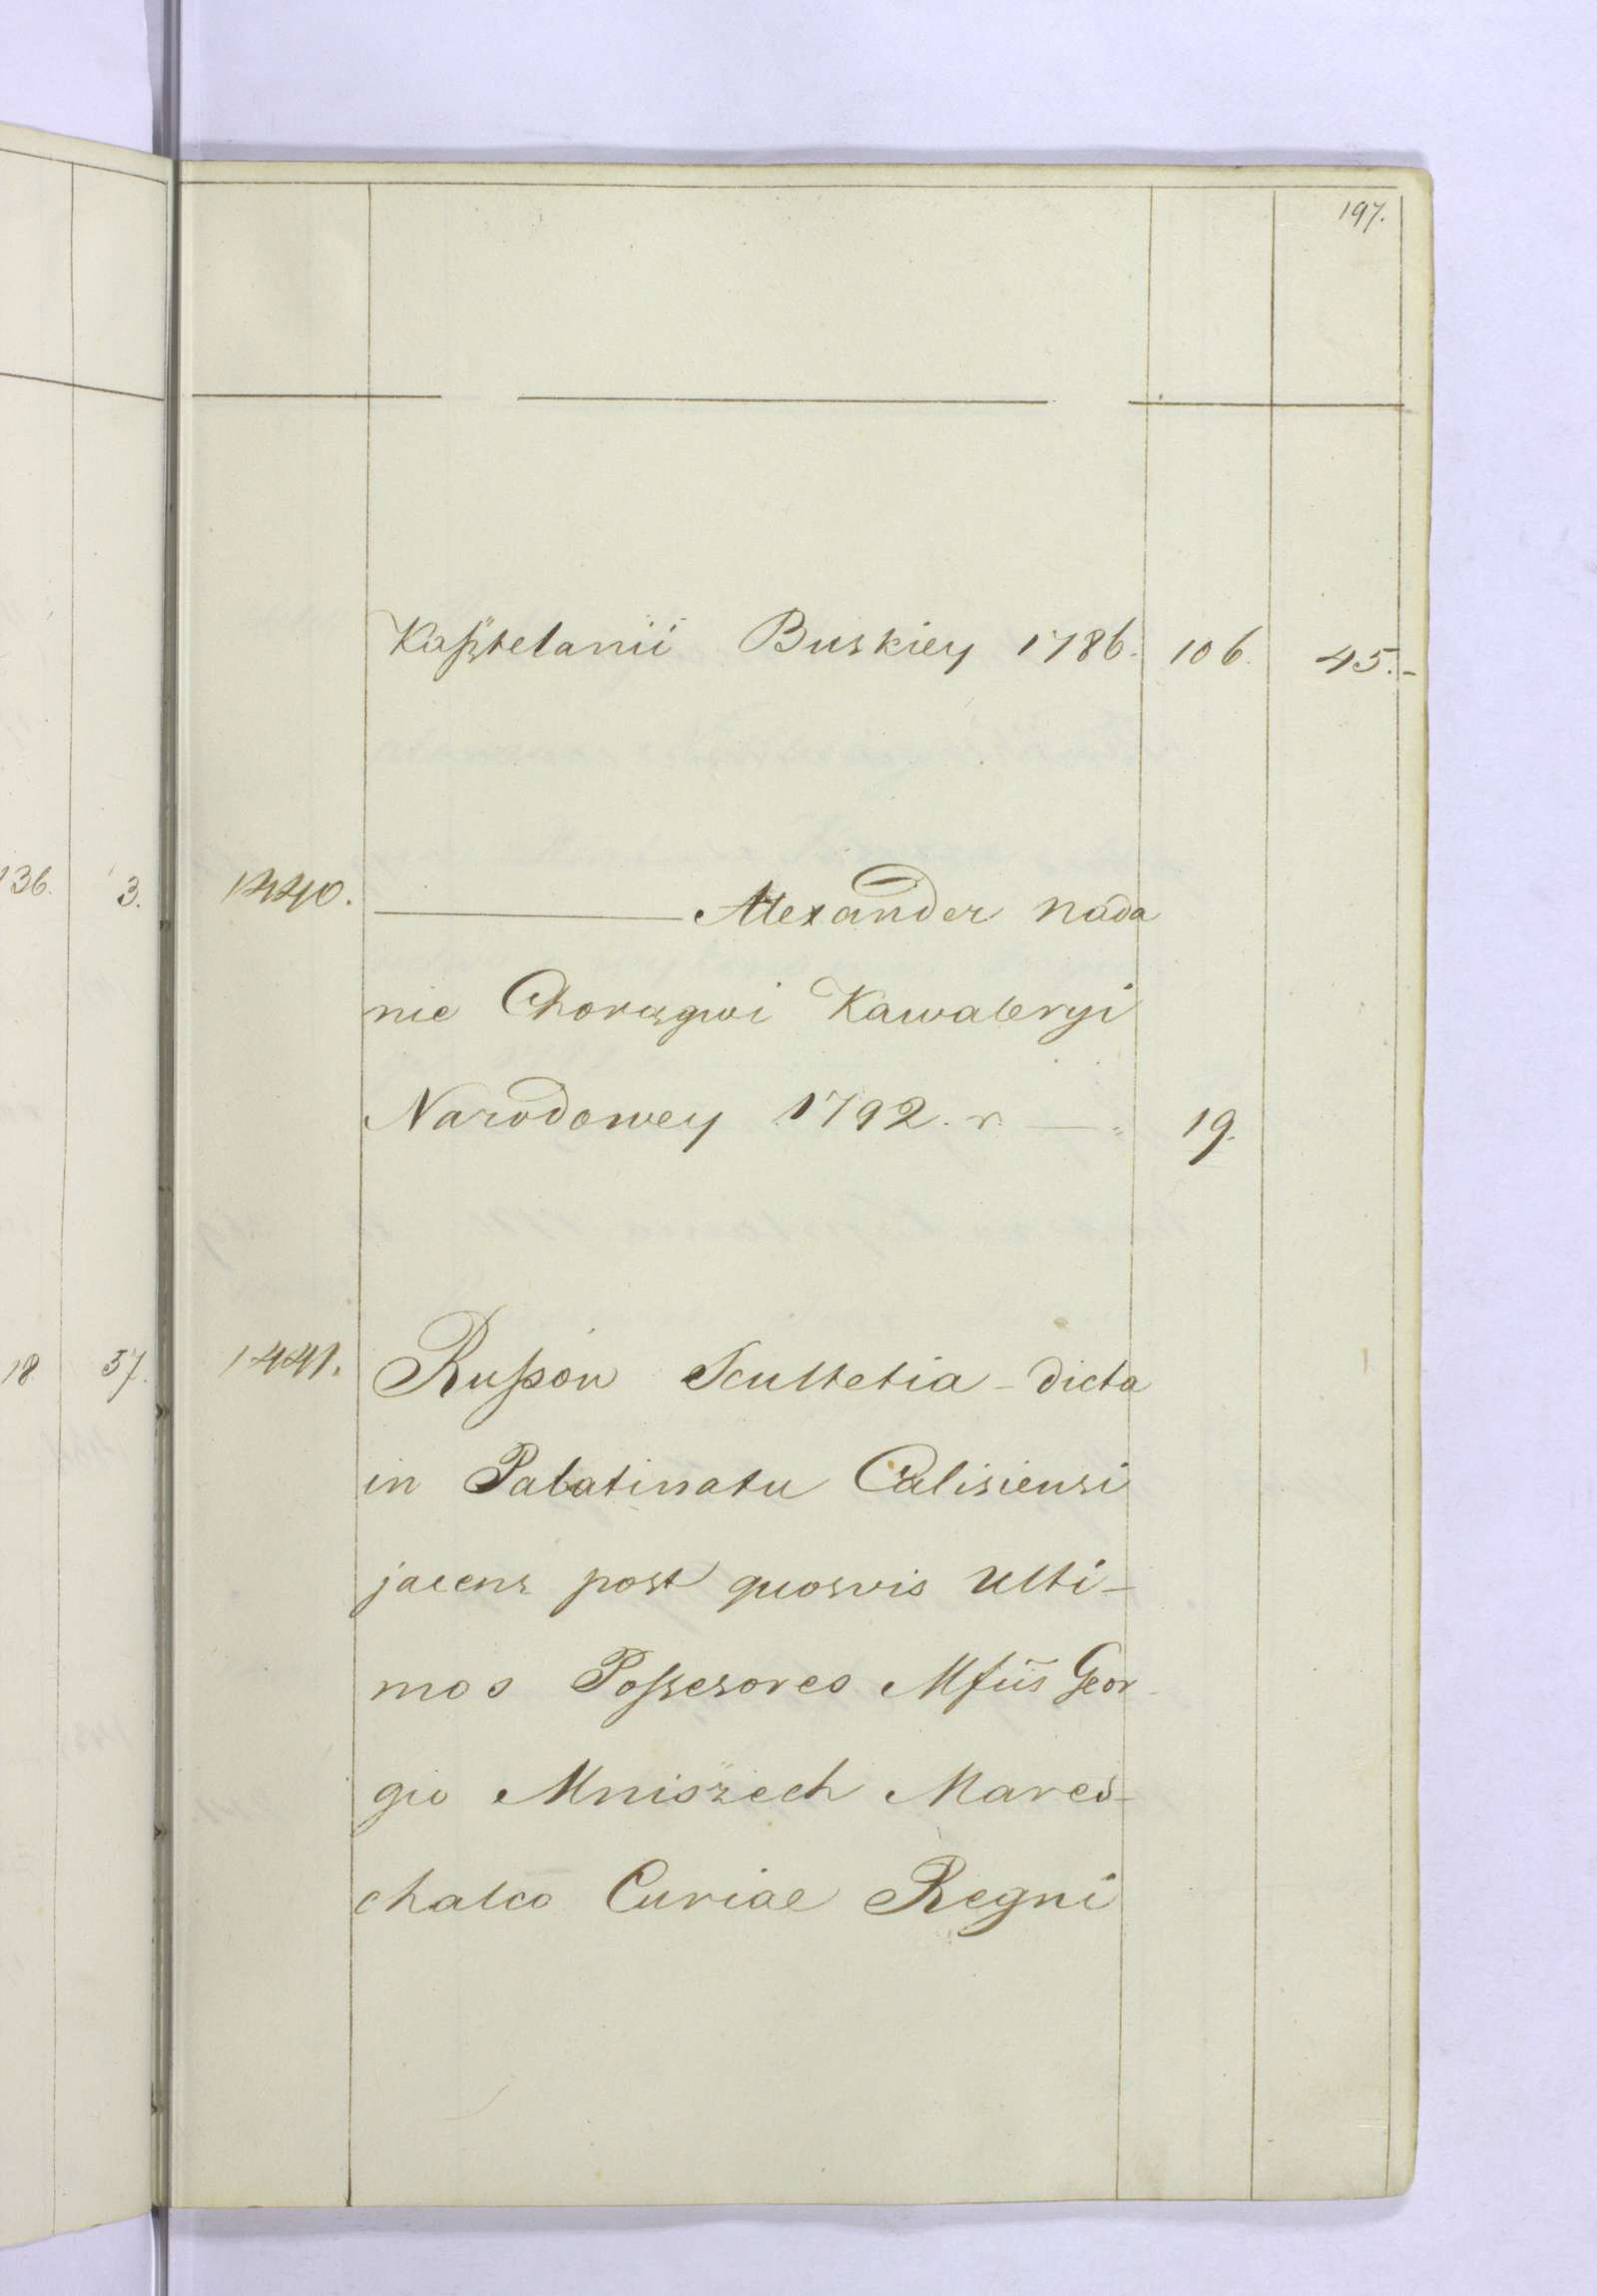 197.
Kasztelanii Buskiey 1786. 106. 45.-
136. 3. 1440. Alexander nada
nie Chorągwi Kawaleryi
Narodowey 1792. r. 19.
18 37. 1441. Ruszow Scultetia - dicta
in Palatinatu Calisiensi
jacens post quosvis Ulti-
mos Possesores Mfiis Geor
gio Mniszech Mares-
chalco Curiae Regni